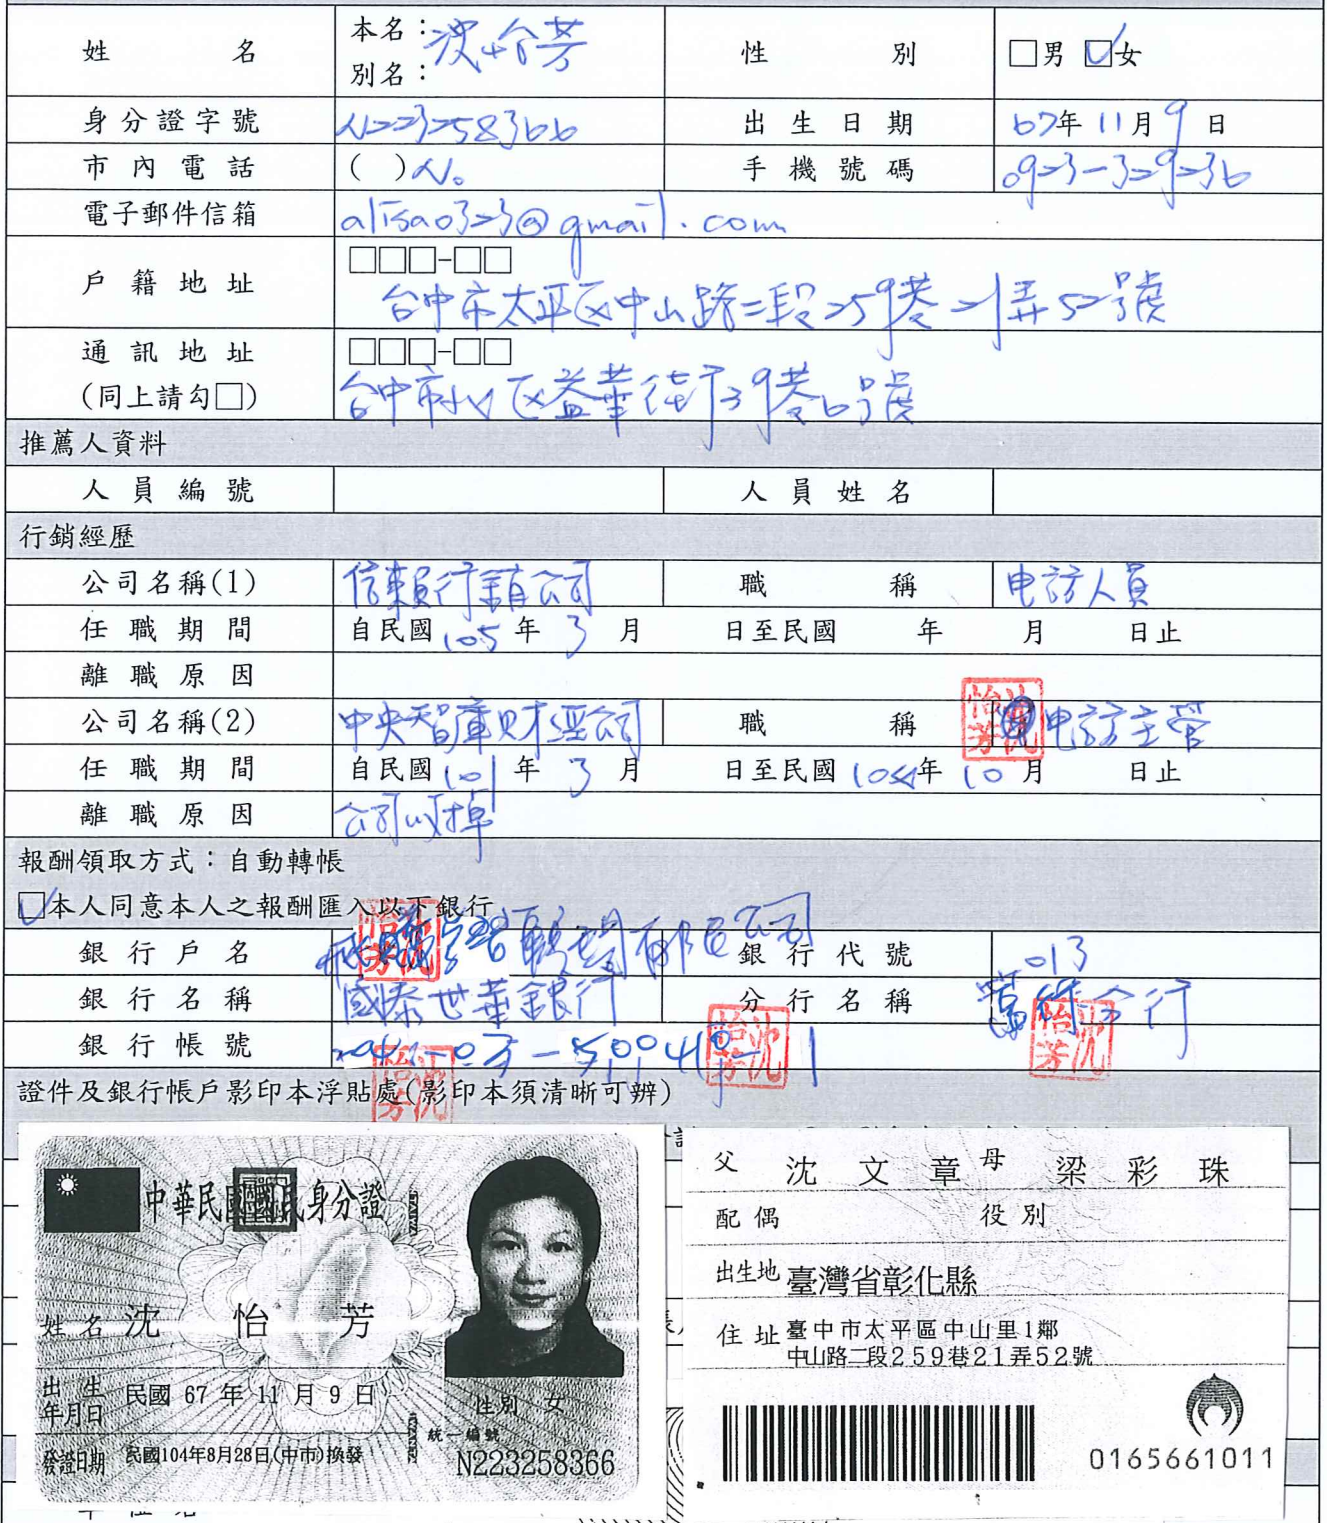 姓 名 本名： 沈怡芳 性 別 □男 ☑女
別名：
身分證字號 N223258366 出生日期 67年11月9日
市內電話 ( )N。 手機號碼 0923-329236
電子郵件信箱 alisa0323@gmail.com
戶籍地址 □□□-□□
台中市太平区中山路二段259巷21弄52號
通訊地址 □□□-□□
(同上請勾□) 台中市北区益華街39巷6號
推薦人資料
人員編號 人員姓名
行銷經歷
公司名稱(1) 信賴行銷公司 職稱 电訪人員
任職期間 自民國105年3月 日至民國 年 月 日止
離職原因
公司名稱(2) 中央智庫財經公司 職稱 电訪主管
任職期間 自民國101年3月 日至民國104年10月 日止
離職原因 公司收掉
報酬領取方式：自動轉帳
☑本人同意本人之報酬匯入以下銀行
銀行戶名 有限公司 銀行代號 013
銀行名稱 國泰世華銀行 分行名稱 分行
銀行帳號
證件及銀行帳戶影印本浮貼處(影印本須清晰可辨)
中華民國國民身分證
姓名 沈怡芳
出生年月日 民國67年11月9日
性別 女
發證日期 民國104年8月28日(中市)換發
統一編號
N223258366
父 沈文章 母 梁彩珠
配偶 役別
出生地 臺灣省彰化縣
住址 臺中市太平區中山里1鄰
中山路二段259巷21弄52號
0165661011